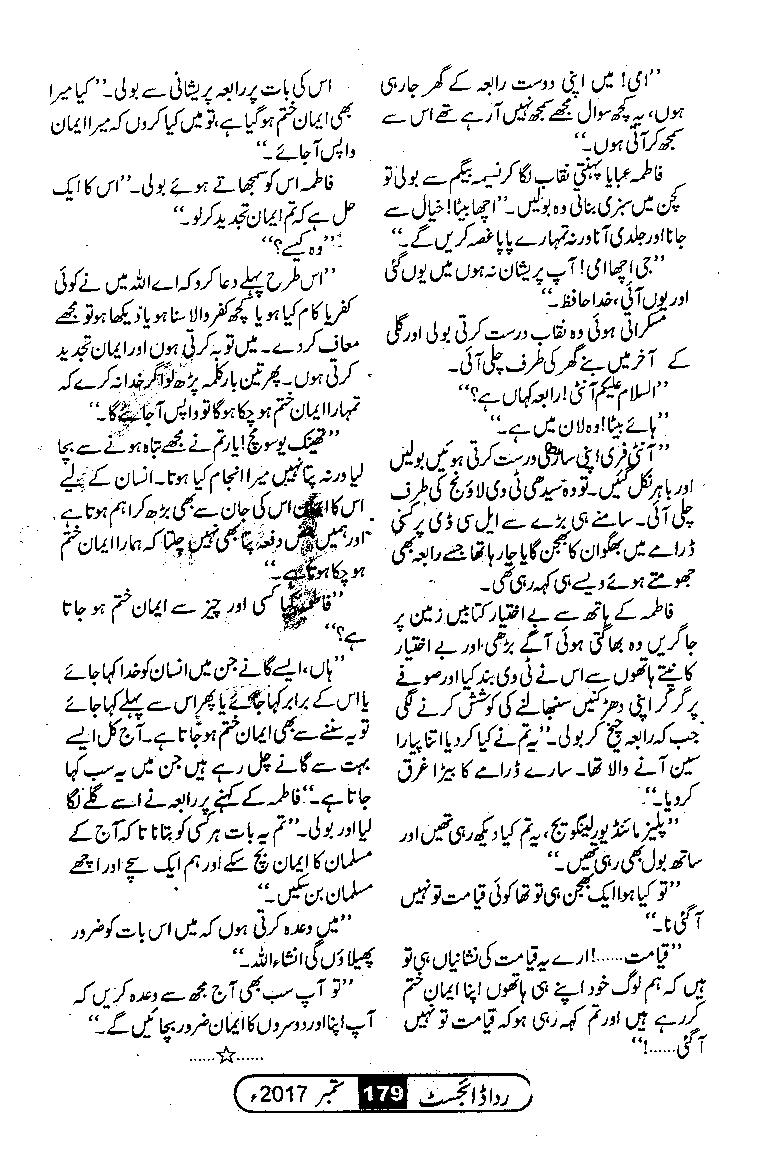 ”امی! میں اپنی دوست رابعہ کے گھر جارہی
ہوں، یہ کچھ سوال مجھے سمجھ نہیں آرہے تھے اس سے
سمجھ کر آتی ہوں۔“
فاطمہ عبایا پہنتی نقاب لگا کر نسیمہ بیگم سے بولی تو
کچن میں سبزی بناتی وہ بولیں۔”اچھا بیٹا! خیال سے
جانا اور جلدی آنا ورنہ تمہارے پاپا غصہ کریں گے۔“
”جی اچھا امی! آپ پریشان نہ ہوں میں یوں گئی
اور یوں آئی، خدا حافظ۔“
مسکراتی ہوئی وہ نقاب درست کرتی بولی اور گلی
کے آخر میں بنے گھر کی طرف چلی آئی۔
”السلام علیکم آنٹی! رابعہ کہاں ہے؟“
”ہائے بیٹا! وہ لان میں ہے۔“
”آنٹی فری! اپنی ساڑھی درست کرتی ہوئیں بولیں
اور باہر نکل گئیں۔ تو وہ سیدھی ٹی وی لاؤنج کی طرف
چلی آئی۔ سامنے ہی بڑے سے ایل سی ڈی پر کسی
ڈرامے میں بھگوان کا بھجن گایا جارہا تھا جسے رابعہ بھی
جھومتے ہوئے ویسے ہی کہہ رہی تھی۔
فاطمہ کے ہاتھ سے بے اختیار کتابیں زمین پر
جا گریں وہ بھاگتی ہوئی آگے بڑھی اور بے اختیار
کانپتے ہاتھوں سے اس نے ٹی وی بند کیا اور صوفے
پر گر کر اپنی دھڑکنیں سنبھالنے کی کوشش کرنے لگی
جب کہ رابعہ چیخ کر بولی۔”یہ تم نے کیا کردیا اتنا پیارا
سین آنے والا تھا۔ سارے ڈرامے کا بیڑا غرق
کردیا۔“
”پلیز مائنڈ یور لینگویج، یہ تم کیا دیکھ رہی تھیں اور
ساتھ بول بھی رہی تھیں۔“
”تو کیا ہوا ایک بھجن ہی تو تھا کوئی قیامت تو نہیں
آگئی نا۔“
”قیامت......! ارے یہ قیامت کی نشانیاں ہی تو
ہیں کہ ہم لوگ خود اپنے ہی ہاتھوں اپنا ایمان ختم
کررہے ہیں اور تم کہہ رہی ہو کہ قیامت تو نہیں
آگئی......!“
اس کی بات پر رابعہ پریشانی سے بولی۔”کیا میرا
بھی ایمان ختم ہوگیا ہے، تو میں کیا کروں کہ میرا ایمان
واپس آجائے۔“
فاطمہ اس کو سمجھاتے ہوئے بولی۔”اس کا ایک
حل ہے کہ تم ایمان تجدید کرلو۔“
”وہ کیسے؟“
”اس طرح پہلے دعا کرو کہ اے اللہ میں نے کوئی
کفریا کام کیا ہو یا کچھ کفر والا سنا ہو یا دیکھا ہو تو مجھے
معاف کردے۔ میں توبہ کرتی ہوں اور ایمان تجدید
کرتی ہوں۔ پھر تین بار کلمہ پڑھ لو اگر خدا نہ کرے کہ
تمہارا ایمان ختم ہوچکا ہوگا تو واپس آجائے گا۔“
”تھینک یو سو مچ! یار تم نے مجھے تباہ ہونے سے بچا
لیا ورنہ پتا نہیں میرا انجام کیا ہوتا۔ انسان کے لیے
اس کا ایمان اس کی جان سے بھی بڑھ کر اہم ہوتا ہے
اور ہمیں دفعہ پتا بھی نہیں چلتا کہ ہمارا ایمان ختم
ہوچکا ہوتا ہے۔“
”فاطمہ کیا کسی اور چیز سے ایمان ختم ہو جاتا
ہے؟“
”ہاں، ایسے گانے جن میں انسان کو خدا کہا جائے
یا اس کے برابر کہا جائے یا پھر اس سے پہلے کہا جائے
تو یہ سننے سے بھی ایمان ختم ہوجاتا ہے۔ آج کل ایسے
بہت سے گانے چل رہے ہیں جن میں یہ سب کہا
جاتا ہے۔“ فاطمہ کے کہنے پر رابعہ نے اسے گلے لگا
لیا اور بولی۔”تم یہ بات ہر کسی کو بتانا تا کہ آج کے
مسلمان کا ایمان بچ سکے اور ہم ایک سچے اور اچھے
مسلمان بن سکیں۔“
”میں وعدہ کرتی ہوں کہ میں اس بات کو ضرور
پھیلاؤں گی انشاء اللہ۔“
”تو آپ سب بھی آج مجھ سے وعدہ کریں کہ
آپ اپنا اور دوسروں کا ایمان ضرور بچائیں گے۔“
......☆......
ردا ڈائجسٹ 179 ستمبر 2017ء